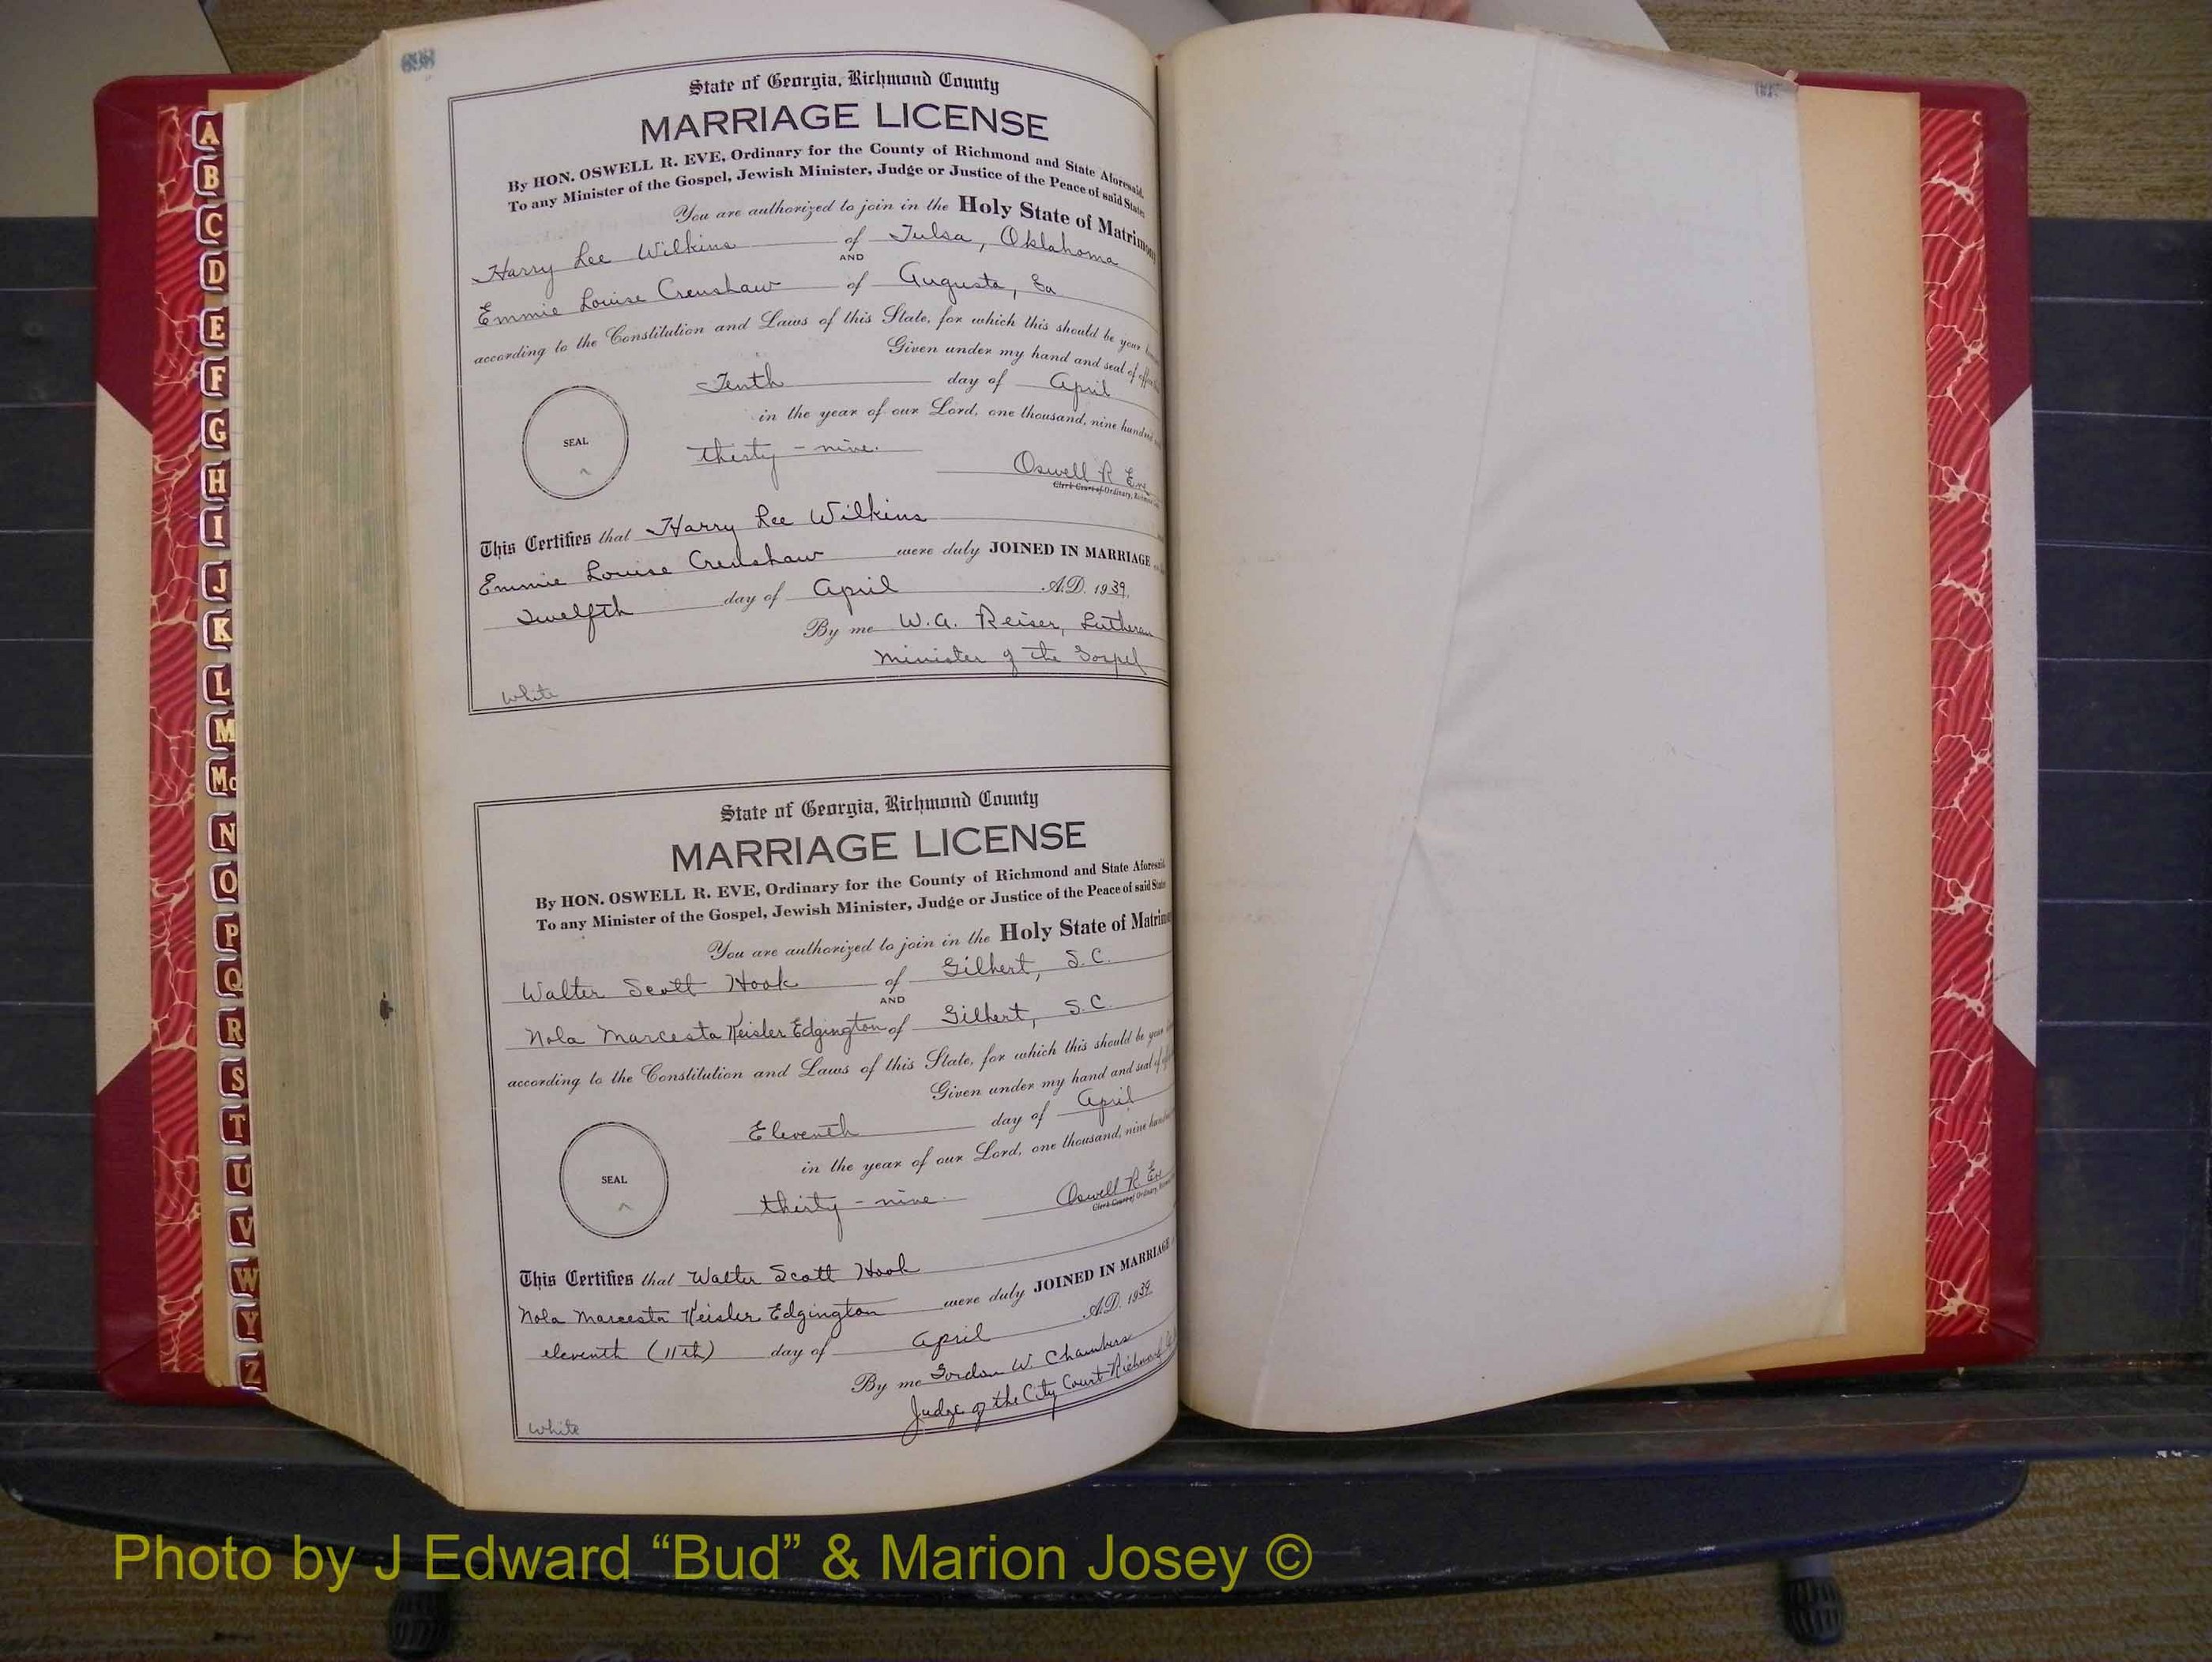 698
State of Georgia, Richmond County
MARRIAGE LICENSE
By HON. OSWELL R. EVE, Ordinary for the County of Richmond and State Aforesaid.
To any Minister of the Gospel, Jewish Minister, Judge or Justice of the Peace of said State
You are authorized to join in the Holy State of Matrimony
Harry Lee Wilkins of Tulsa, Oklahoma
AND
Emmie Louise Crenshaw of Augusta, Ga
according to the Constitution and Laws of this State, for which this should be your
Given under my hand and seal of
Tenth day of April
in the year of our Lord, one thousand, nine hundred
SEAL
thirty-nine.
Oswell R Eve
Clerk Court of Ordinary,
This Certifies that Harry Lee Wilkins
Emmie Louise Crenshaw were duly JOINED IN MARRIAGE
Twelfth day of April A.D. 1939.
By me W.A. Reiser, Lutheran
Minister of the Gospel
White
State of Georgia, Richmond County
MARRIAGE LICENSE
By HON. OSWELL R. EVE, Ordinary for the County of Richmond and State Aforesaid.
To any Minister of the Gospel, Jewish Minister, Judge or Justice of the Peace of said State
You are authorized to join in the Holy State of Matrimo
Walter Scott Hook of Gilbert, S.C.
AND
Nola Marcesta Keisler Edgington of Gilbert, S.C.
according to the Constitution and Laws of this State, for which this should be your
Given under my hand and seal of
Eleventh day of April
in the year of our Lord, one thousand, nine
SEAL
thirty-nine
Oswell R. Eve
Clerk Court of Ordinary,
This Certifies that Walter Scott Hook
Nola Marcesta Keisler Edgington were duly JOINED IN MARRIAGE
eleventh (11th) day of April A.D. 1939.
By me Gordon W. Chambers
Judge of the City Court Richmond
White
A
B
C
D
E
F
G
H
I
J
K
L
M
Mc
N
O
P
Q
R
S
T
U
V
W
Y
Z
Photo by J Edward “Bud” & Marion Josey ©